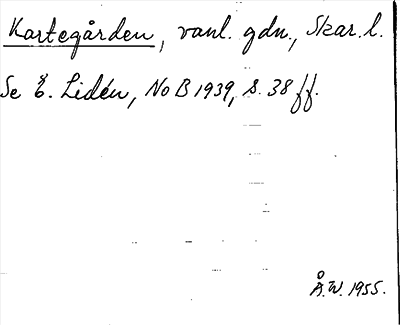 Kartegården, vanl. gdn., Skar. l.
Se E. Lidén, NoB 1939, s. 38 ff.
Å.W. 1955.